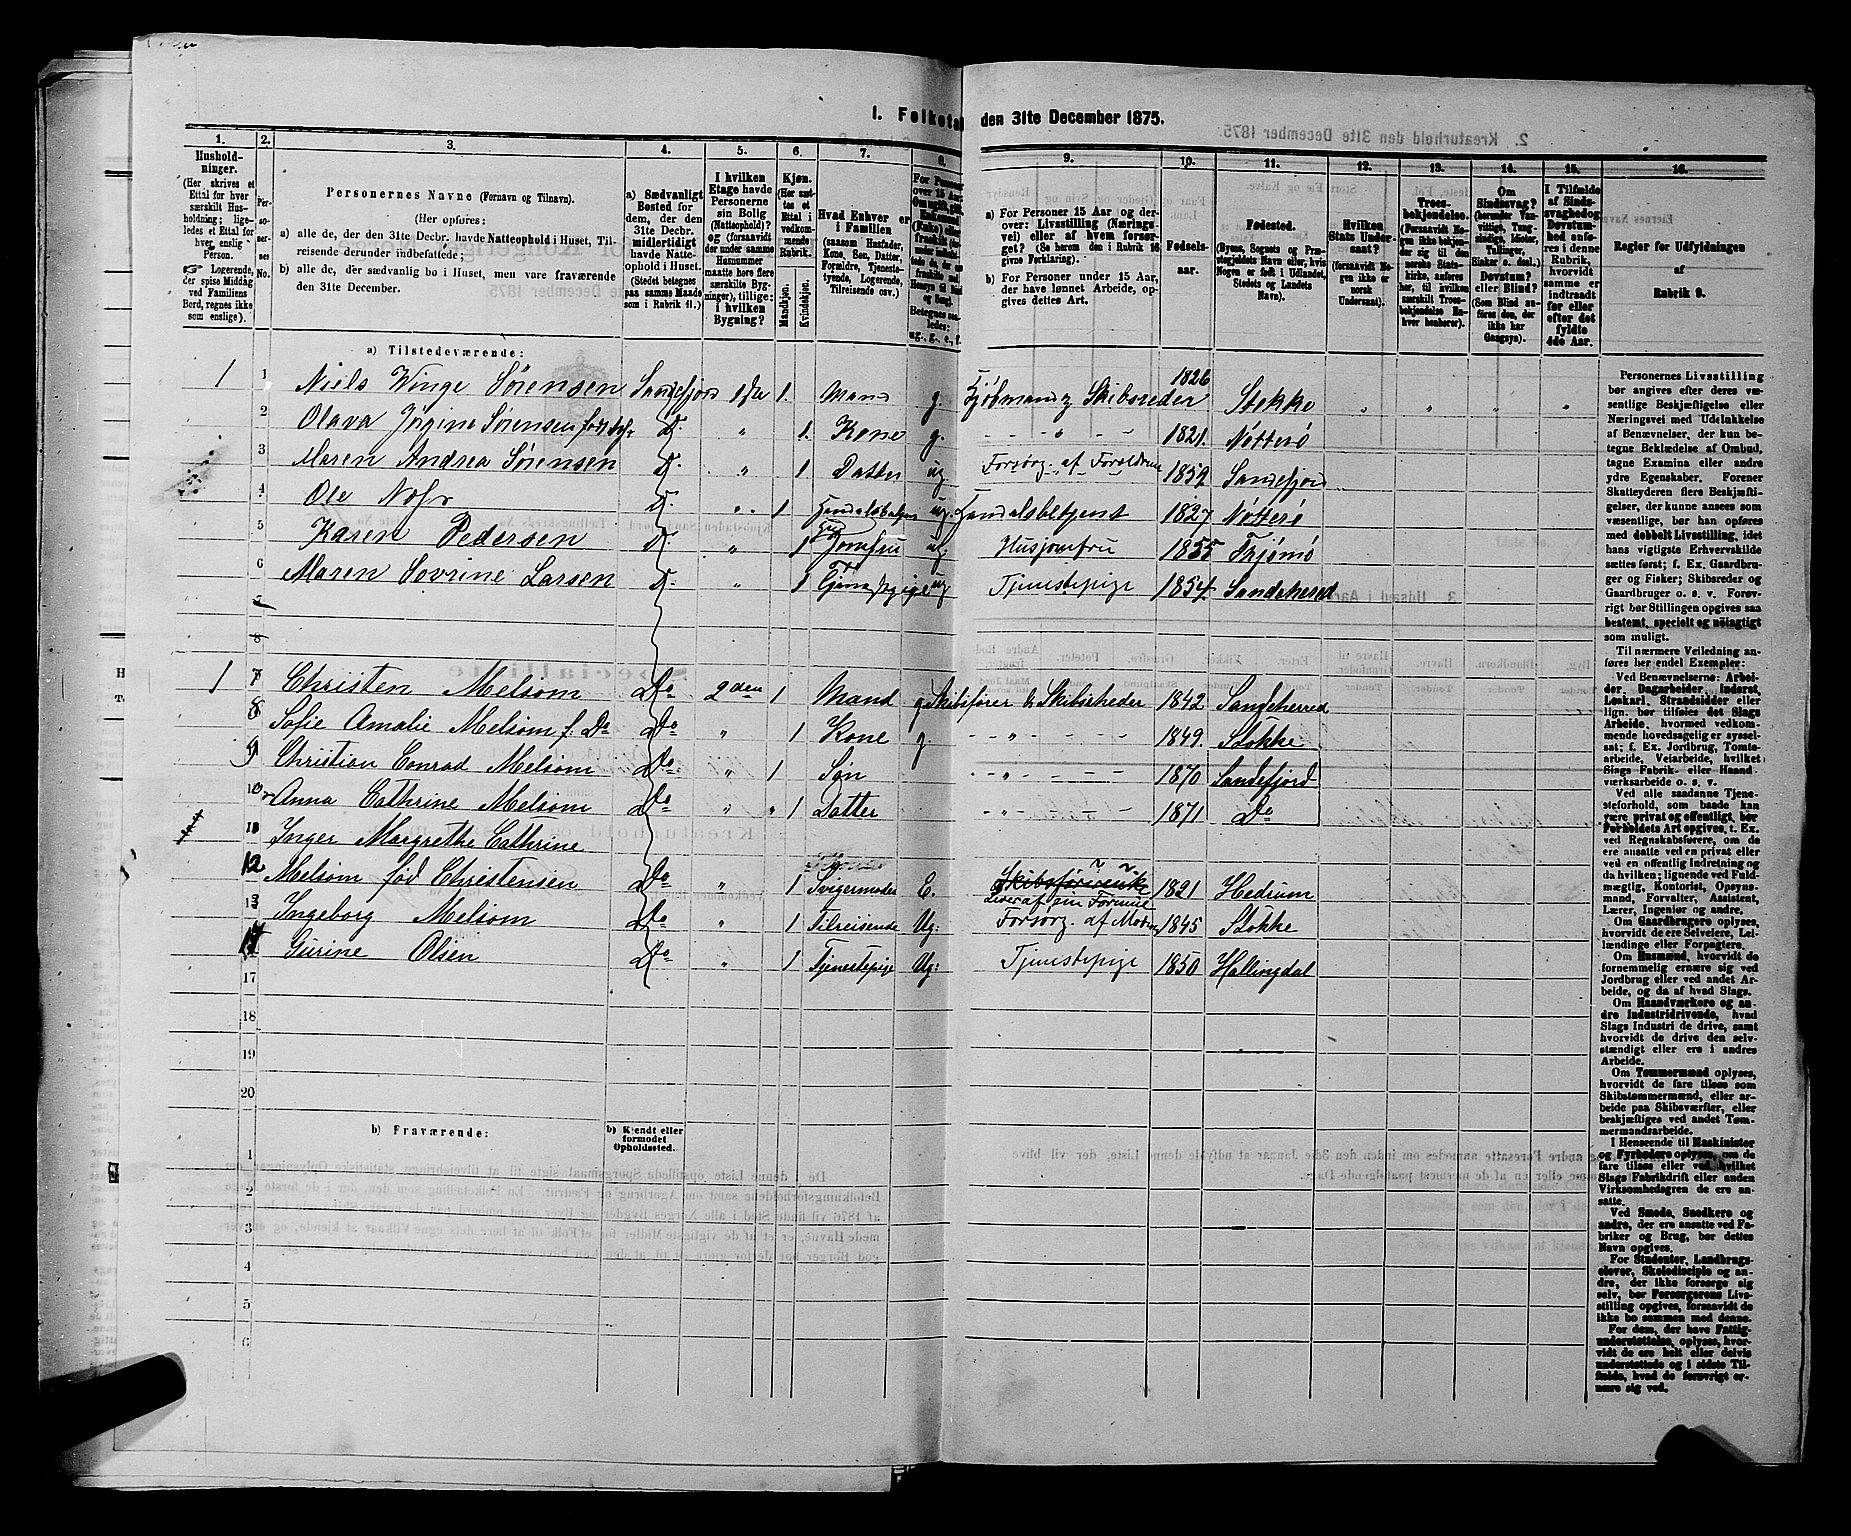 1. Folketal den 31te December 1875.
1. 2. 3. 4. 5. 6. 7. 8. 9. 10. 11. 12. 13. 14. 15. 16.
Husholdninger.
(Her skrives et
Ettal for hver
særskilt Husholdning;
ligeledes
et Ettal for
hver enslig
Person.
Logerende,
der spise Middag
ved Familiens
Bord, regnes ikke
som enslige).
Personernes No.
Personernes Navne (Fornavn og Tilnavn).
(Her opføres:
a) alle de, der den 31te Decbr. havde Natteophold i Huset, Tilreisende
derunder indbefattede;
b) alle de, der sædvanlig bo i Huset, men vare fraværende
den 31te December.
a) Sædvanligt
Bosted for
dem, der den
31te Decbr.
midlertidigt
havde Natteophold
i Huset.
(Stedet betegnes
paa samme Maade
som i Rubrik 11.)
I hvilken
Etage havde
Personerne
sin Bolig
(Natteophold)?
og (forsaavidt
der under samme
Husnummer
maatte høre flere
særskilte Bygninger),
tillige:
i hvilken
Bygning?
Kjøn.
(Her sættes
et
Ettal i
vedkommende
Rubrik.
Mandkjøn.
Kvindekjøn.
Hvad Enhver er
i Familien
(saasom Husfader,
Kone, Søn, Datter,
Forældre, Tjenestetyende,
Logerende,
Tilreisende osv.)
a) For Personer 15 Aar og derover:
Livsstilling (Næringsvei)
eller af hvem forsørget?
(Se herom den i Rubrik 16
givne Forklaring).
b) For Personer under 15 Aar,
der have lønnet Arbeide, opgives
dettes Art.
Fødselsaar.
Fødested.
(Byens, Sognets og Præstegjeldets
Navn eller, hvis
Nogen er født i Udlandet,
Stedets og Landets
Navn).
Hvilken
Stats Undersaat?
(forsaavidt Nogen
ikke er
norsk
Undersaat).
Troesbekjendelse.
(Forsaavidt Nogen
ikke bekjender
sig til den
norske Statskirke,
anføres
her, til hvilken
særskilt Troesbekjendelse
Enhver
henhører).
Om
Sindssvag?
(herunder Vanvittige,
Tungsindige,
Idioter,
Tullinger,
Sinker o. desl.).
Døvstum?
eller Blind?
(Som Blind anføres
den, der
ikke har
Gangsyn).
I Tilfælde
af Sindssvaghed
og
Døvstumhed
anføres
i denne
Rubrik,
hvorvidt
samme er
indtraadt
før eller
efter det
fyldte
4de Aar.
Regler for Udfyldningen
af
Rubrik 9.
a) Tilstedeværende:
1 1 Niels Winge Sørensen Sandefjord 1ste 1. Mand g. Kjøbmand og Skibsreder 1826 Stokke
2 Olava Jørgine Sørensen Do. " 1. Kone g. - - " - - 1821. Nøtterø
3 Maren Andrea Sørensen Do. " 1 Datter ug Forsørg. af Forældrene 1859 Sandefjord
4 Ole Do. " 1 Handelsbetjent ug. Handelsbetjent 1827 Nøtterø
5 Karen Pedersen Do. " 1 Jomfru ug. Husjomfru 1855 Tjømø
6 Maren Sovrine Larsen Do. " 1 Tjenestepige ug. Tjenestepige 1854. Sandeherred
7
8
1 7 Christen Melsom Do 2den 1 Mand g Skibsfører & Skibsrheder 1842 Sandeherred
8 Sofie Amalie Melsom f. Do Do " 1 Kone g - - " - - - 1849. Stokke
9 Christian Conrad Melsom Do " 1 Søn - - " - - - 1870 Sandefjord
10 Anna Cathrine Melsom Do " " 1 Datter - - " - - 1871 Do
11 Inger Margrethe Cathrine
12 Melsom fød Christensen Do " 1 Svigermoder E. Lever af sin Formue 1821 Hedrum
13 Ingeborg Melsom Do " 1 Tilreisende Ug: Forsørg. af Moderen 1845 Stokke
14 Gurine Olsen Do " 1 Tjenestepige Ug: Tjenestepige 1850 Hallingdal
17
18
19
20
b) Fraværende:
b) Kjendt eller
formodet
Opholdssted.
1
2
3
4
5
6
Personernes Livsstilling
bør angives efter deres væsentlige
Beskjæftigelse eller
Næringsvei med Udelukkelse
af Benævnelser, der kun betegne
Beklædelse af Ombud,
tagne Examina eller andre
ydre Egenskaber. Forener
Skatteyderen flere Beskjæftigelser,
der kunne ansees som
væsentlige, bør han opføres
med dobbelt Livsstilling, idet
hans vigtigste Erhvervskilde
sættes først; f. Ex. Gaardbruger
og Fisker; Skibsreder og
Gaardbruger o. s. v. Forøvrigt
bør Stillingen opgives saa
bestemt, specielt og nøiagtigt
som muligt.
Til nærmere Veiledning anføres
her endel Exempler:
Ved Benævnelserne: Arbeider,
Dagarbeider, Inderst,
Løskarl, Strandsidder eller
lign. bør tilføies det Slags
Arbeide, hvormed vedkommende
hovedsagelig er sysselsat;
f. Ex. Jordbrug, Tomtearbeide,
Veiarbeide, hvilket
Slags Fabrik- eller Haandværksarbeide
o. s. v.
Ved alle saadanne Tjenesteforhold,
som baade kan
være privat og offentligt, bør
Forholdets Art opgives, t. Ex.
ved Regnskabsførere, om de
ere ansatte ved en privat eller
ved en offentlig Indretning og
da hvilken; lignende ved Fuldmægtig,
Kontorist, Opsynsmand,
Forvalter, Assistent,
Lærer, Ingeniør og andre.
Om Gaardbrugere oplyses,
hvorvidt de ere Selveiere, Leilændinge
eller Forpagtere.
Om Husmænd, hvorvidt de
fornemmelig ernære sig ved
Jordbrug eller ved andet Arbeide,
og da af hvad Slags.
Om Haandværkere og andre
Industridrivende, hvad
Slags Industri de drive, samt
hvorvidt de drive den selvstændigt
eller ere i andres
Arbeide.
Om Tømmermænd oplyses,
hvorvidt de fare tilsøs som
Skibstømmermænd, eller arbeide
paa Skibsværfter, eller
beskjæftiges ved andet Tømmermandsarbeide.
I Henseende til Maskinister
og Fyrbødere oplyses, om de
fare tilsøs eller ved hvilket
Slags Fabrikdrift eller anden
Virksomhedsgren de ere ansatte.
Ved Smede, Snedkere og
andre, der ere ansatte ved Fabriker
og Brug, bør dettes
Navn opgives.
For Studenter, Landbrugselever,
Skoledisciple og andre,
der ikke forsørge sig
selv, bør Forsørgerens Livsstilling
opgives, forsaavidt de
ikke bo sammen med denne.
For dem, der have Fattigunderstøttelse,
oplyses, hvorvidt
de ere helt eller delvis
understøttede og i sidste Tilfælde,
hvad de forøvrigt ernære
sig ved.